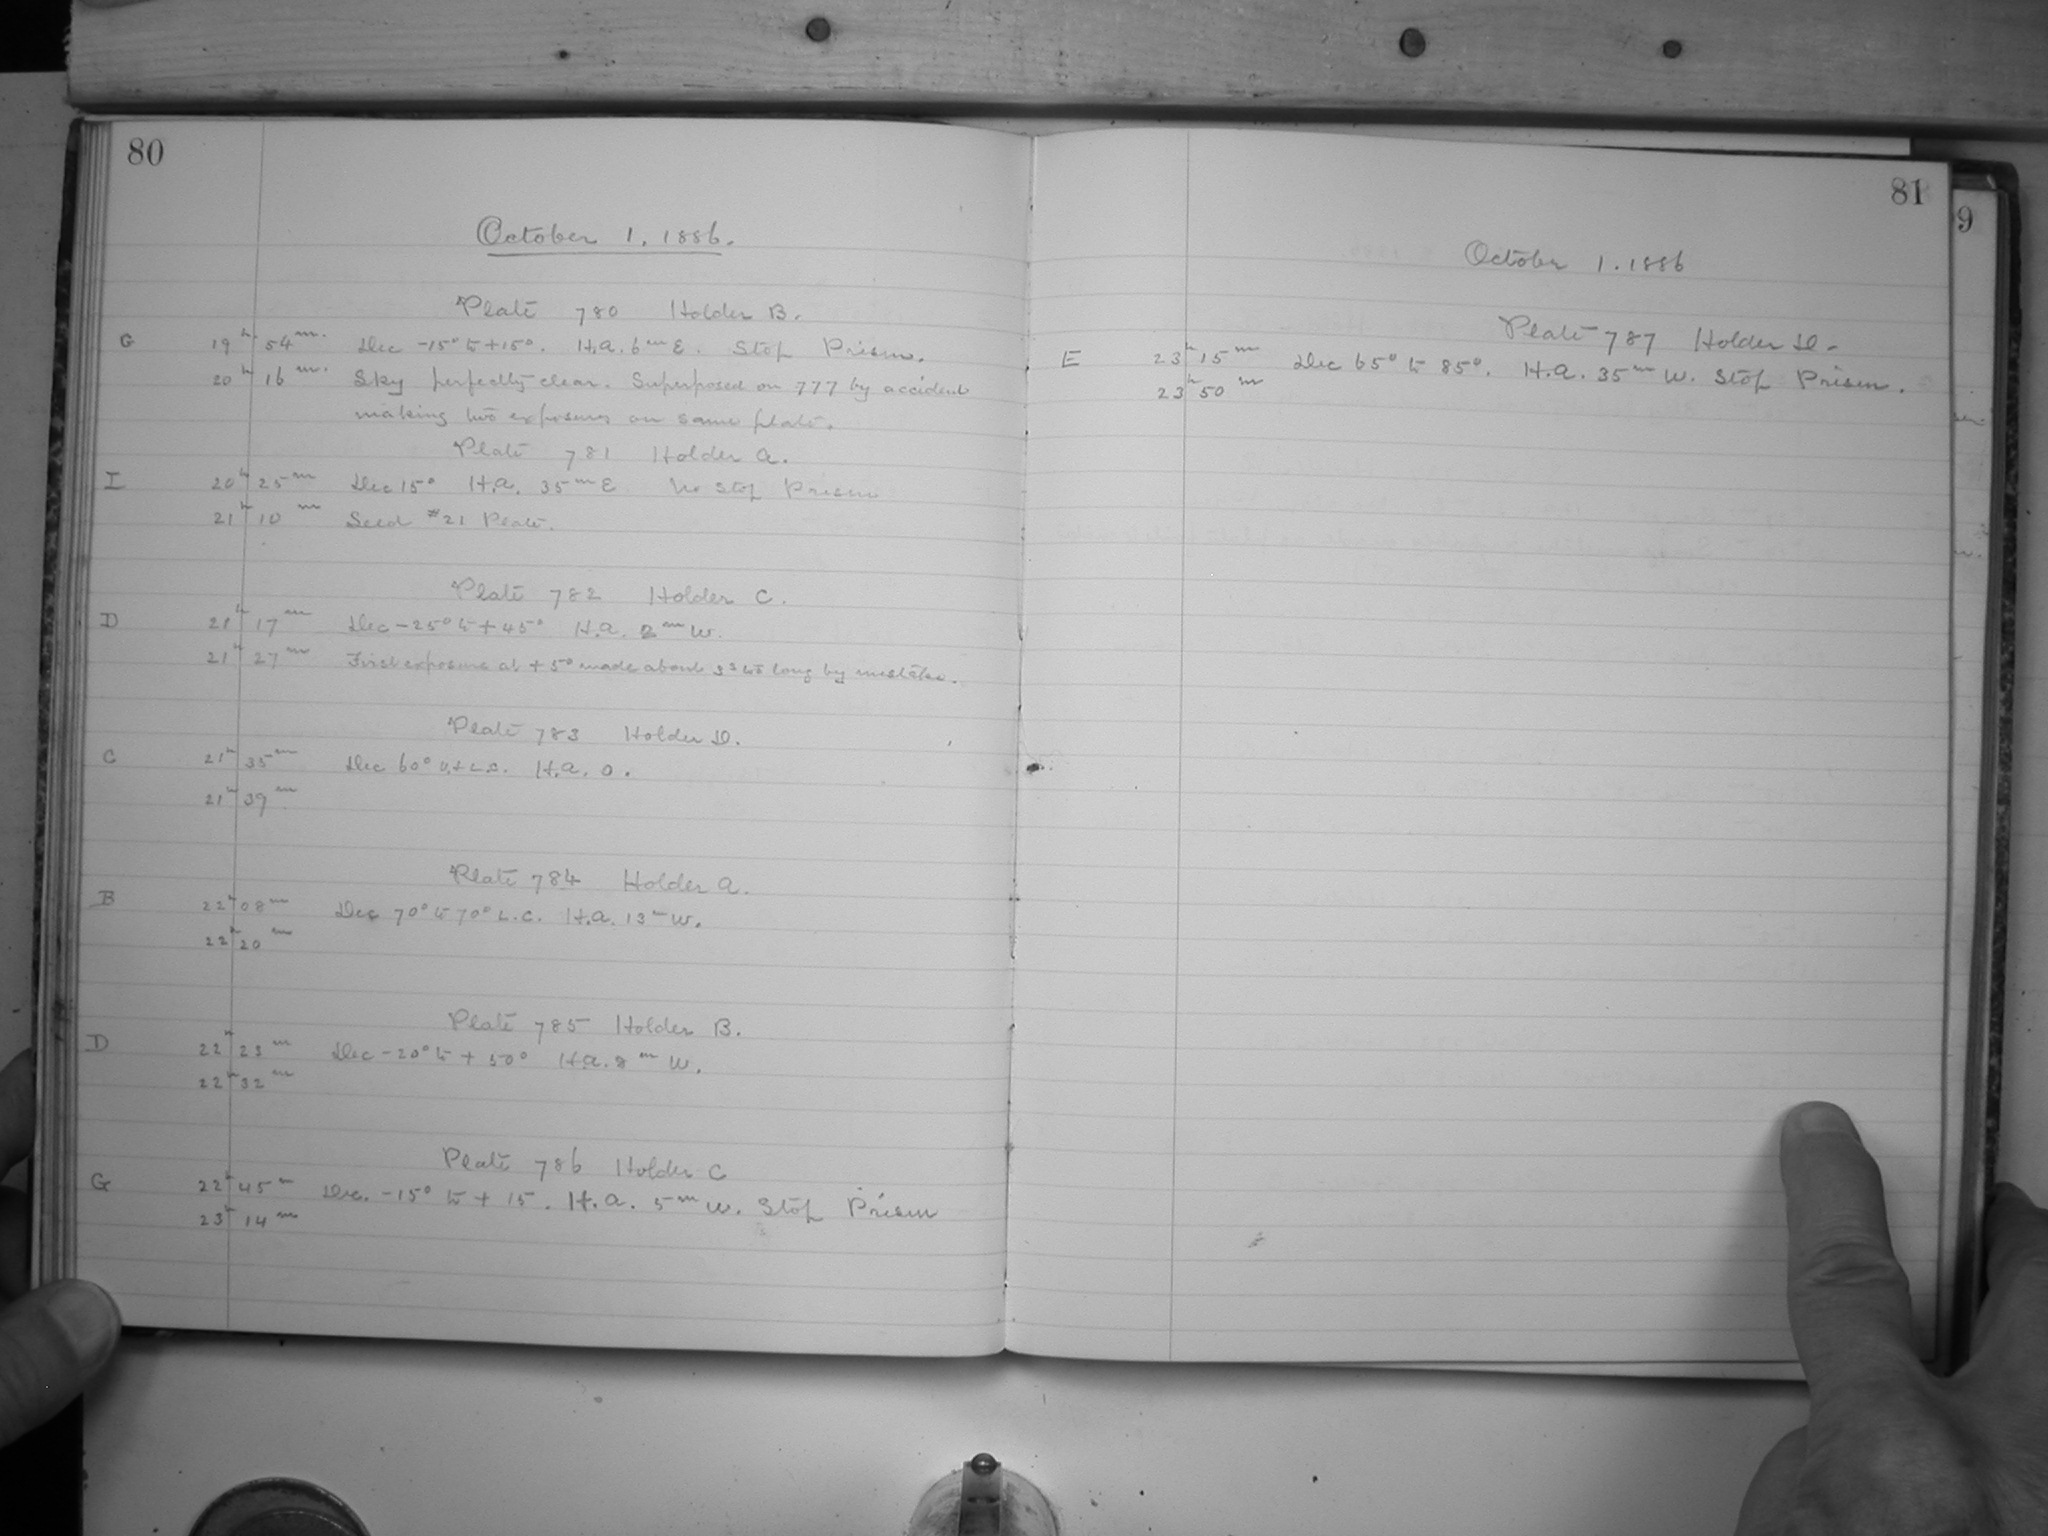 80
October 1, 1886.
Plate 780 Holder B.
G 19h 54m. Dec -15° to +15°. H.A. 6m E. Stop Prism.
20h 16m. Sky perfectly clear. Superposed on 777 by accident
making two exposures on same plate.
Plate 781 Holder A.
I 20h 25m Dec 15° H.A. 35m E No Stop Prism
21h 10m Seed #21 Plate.
Plate 782 Holder C.
D 21h 17m Dec -25° to +45° H.A. 2m W.
21h 27m First exposure at +5° made about long by mistake.
Plate 783 Holder D.
C 21h 35m Dec 60° U. & L.C. H.A. 0.
21h 39m
Plate 784 Holder A.
B 22h 08m Dec 70° to 70° L.C. H.A. 13m W.
22h 20m
Plate 785 Holder B.
D 22h 23m Dec -20° to +50° H.A. 8m W.
22h 32m
Plate 786 Holder C
G 22h 45m Dec. -15° to +15. H.A. 5m W. Stop Prism
23h 14m
81
October 1. 1886
Plate 787 Holder D.
E 23h 15m Dec 65° to 85°. H.A. 35m W. Stop Prism.
23h 50m
9